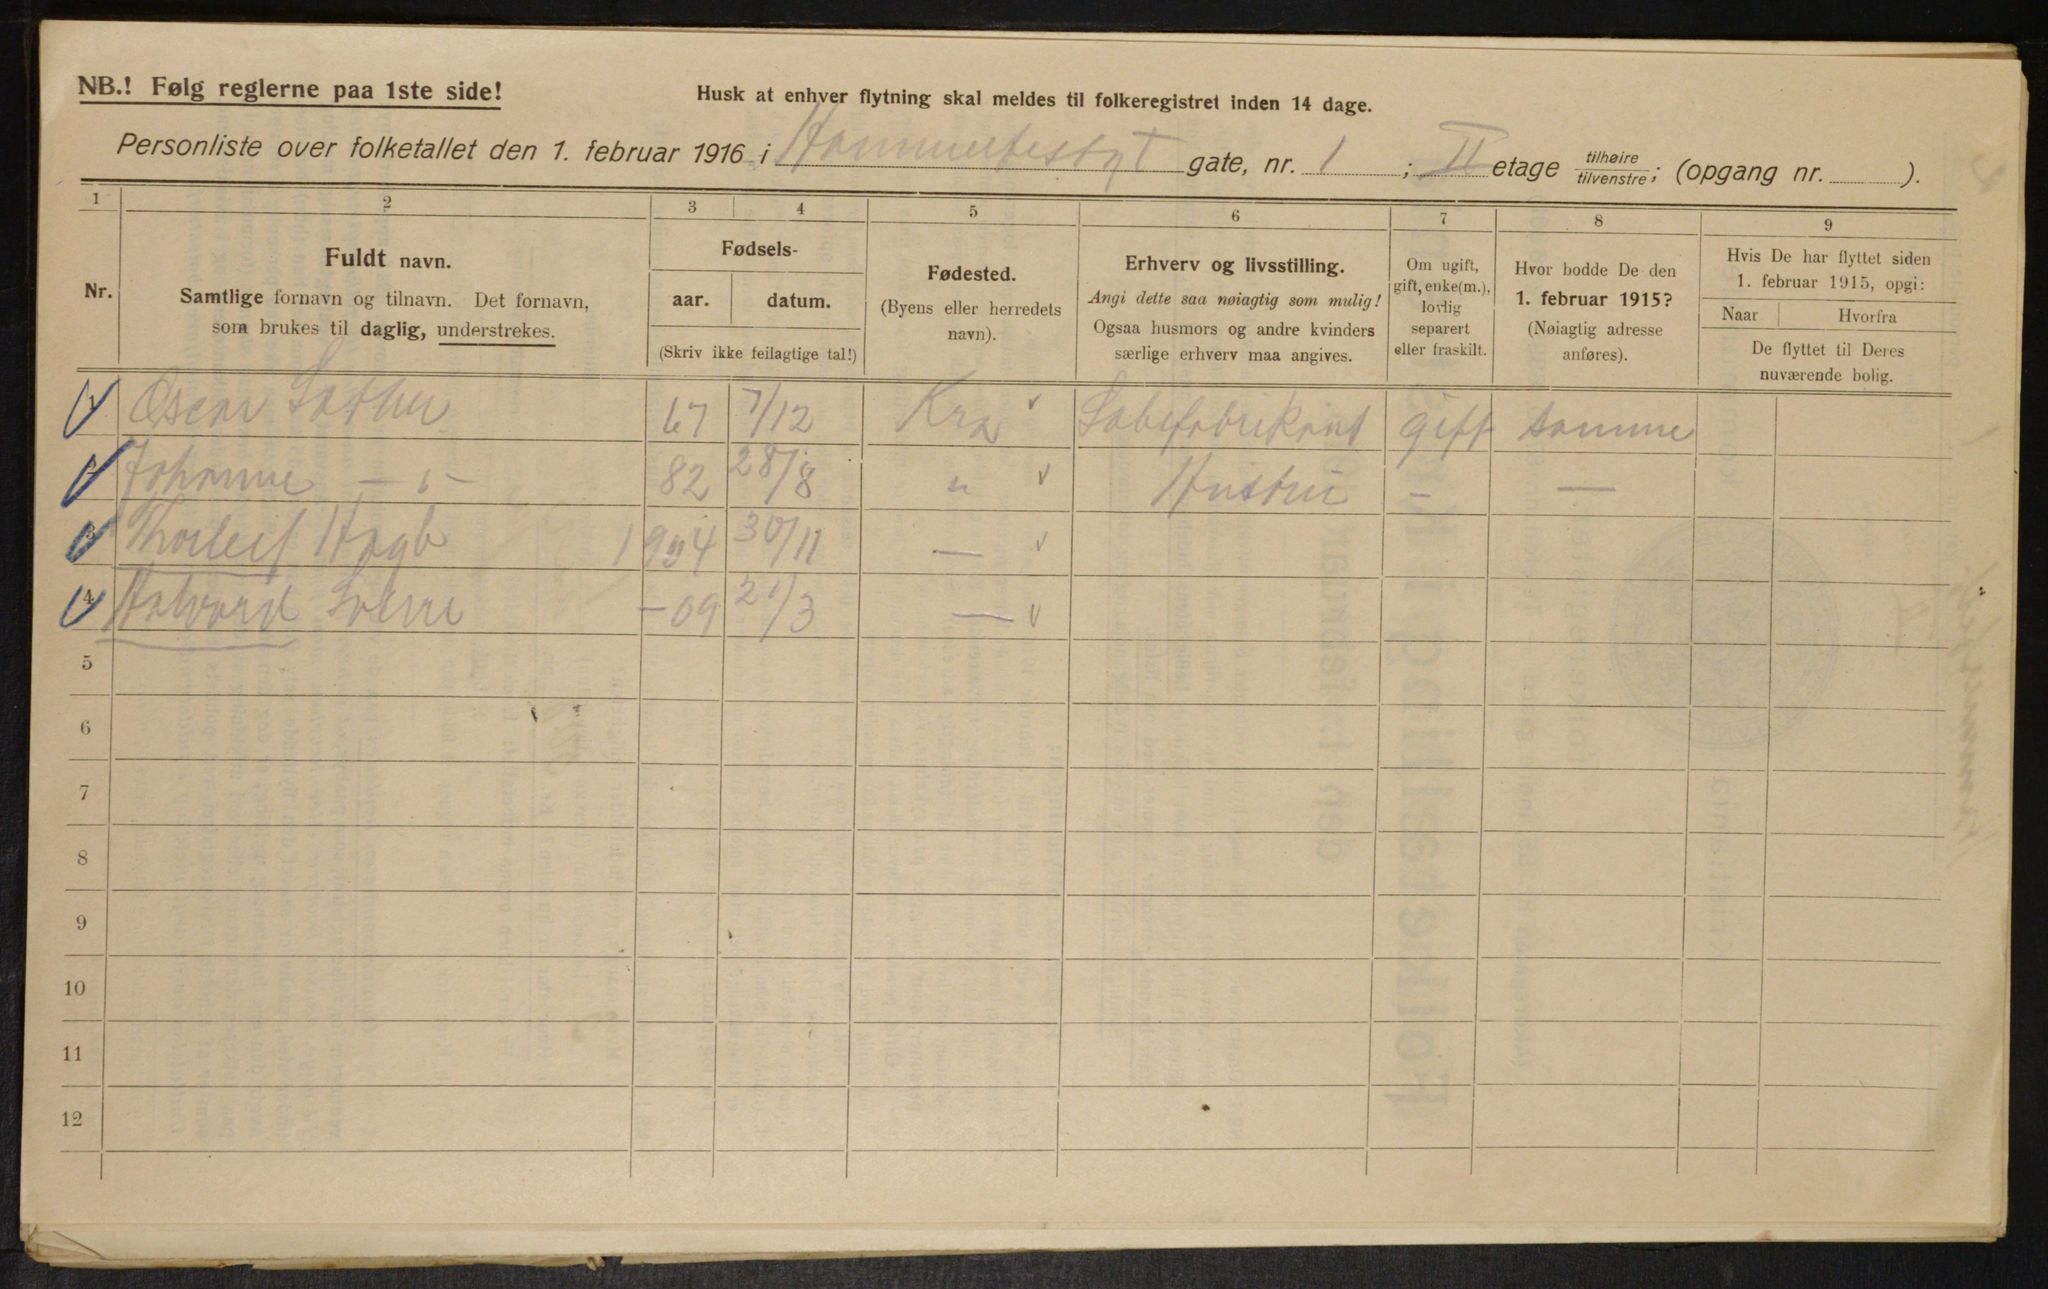 NB.! Følg reglerne paa 1ste side!
Husk at enhver flytning skal meldes til folkeregistret inden 14 dage.
Personliste over folketallet den 1. februar 1916 i Hammerfestgt gate, nr. 1 ; II etage tilhøire/tilvenstre; (opgang nr. ).
1 2 3 4 5 6 7 8 9
Nr.
Fuldt navn.
Samtlige fornavn og tilnavn. Det fornavn,
som brukes til daglig, understrekes.
Fødsels-
aar. datum.
(Skriv ikke feilagtige tal!)
Fødested.
(Byens eller herredets
navn).
Erhverv og livsstilling.
Angi dette saa nøiagtig som mulig!
Ogsaa husmors og andre kvinders
særlige erhverv maa angives.
Om ugift,
gift, enke(m.),
lovlig
separert
eller fraskilt.
Hvor bodde De den
1. februar 1915?
(Nøiagtig adresse
anføres).
Hvis De har flyttet siden
1. februar 1915, opgi:
Naar Hvorfra
De flyttet til Deres
nuværende bolig.
1 Oscar 67 7/12 Kra Gift samme
2 Johanne — " — 82 28/8 " Hustru - —
3 Thorleif 1904 30/11 —
4 Halvard — 09 21/3 —
5
6
7
8
9
10
11
12